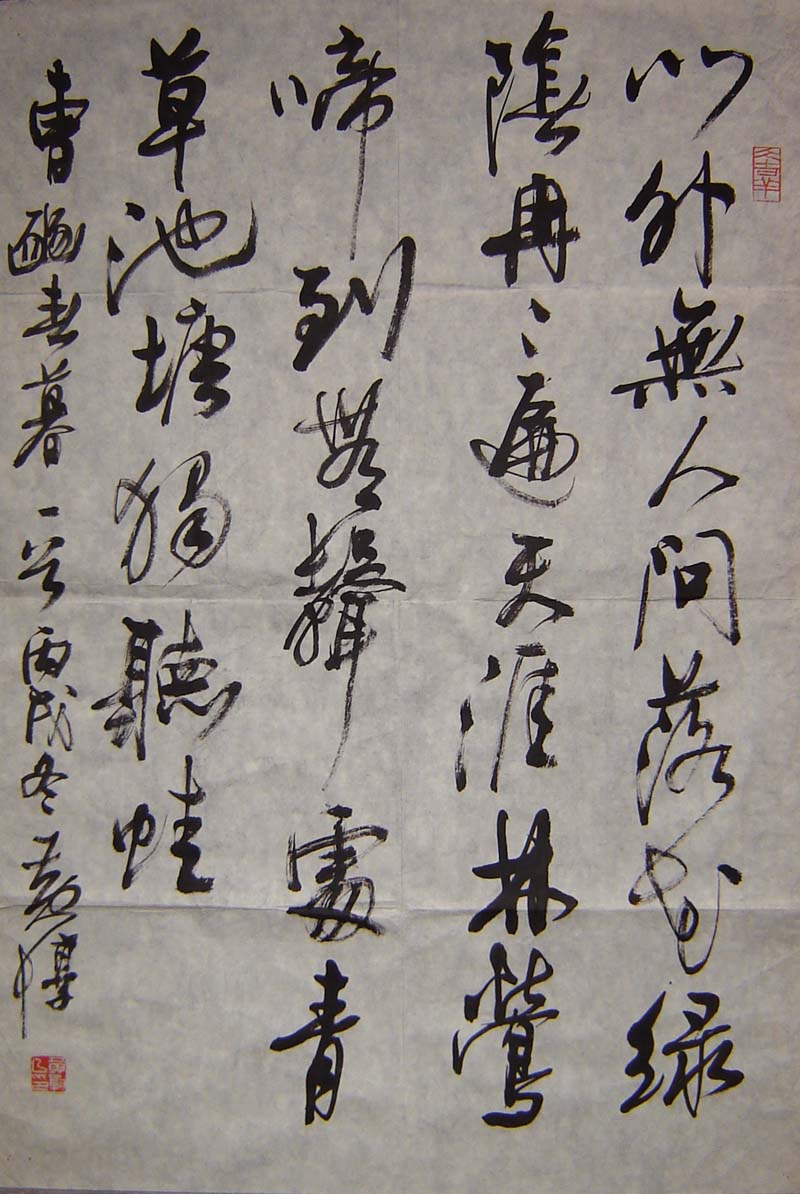 門外無人問落花綠
陰冉〻遍天涯林鶯
啼到無聲處青
草池塘獨聽蛙
曹豳春暮一首 丙戌冬